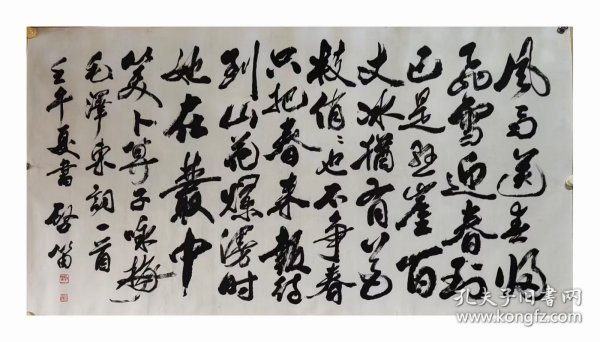 风雨送春归
飞雪迎春到
已是悬崖百
丈冰犹有花
枝俏俏也不争春
只把春来報待
到山花爛漫时
她在叢中
笑卜算子咏梅
毛澤东詞一首
壬午夏書
孔夫子旧书网
www.kongfz.com